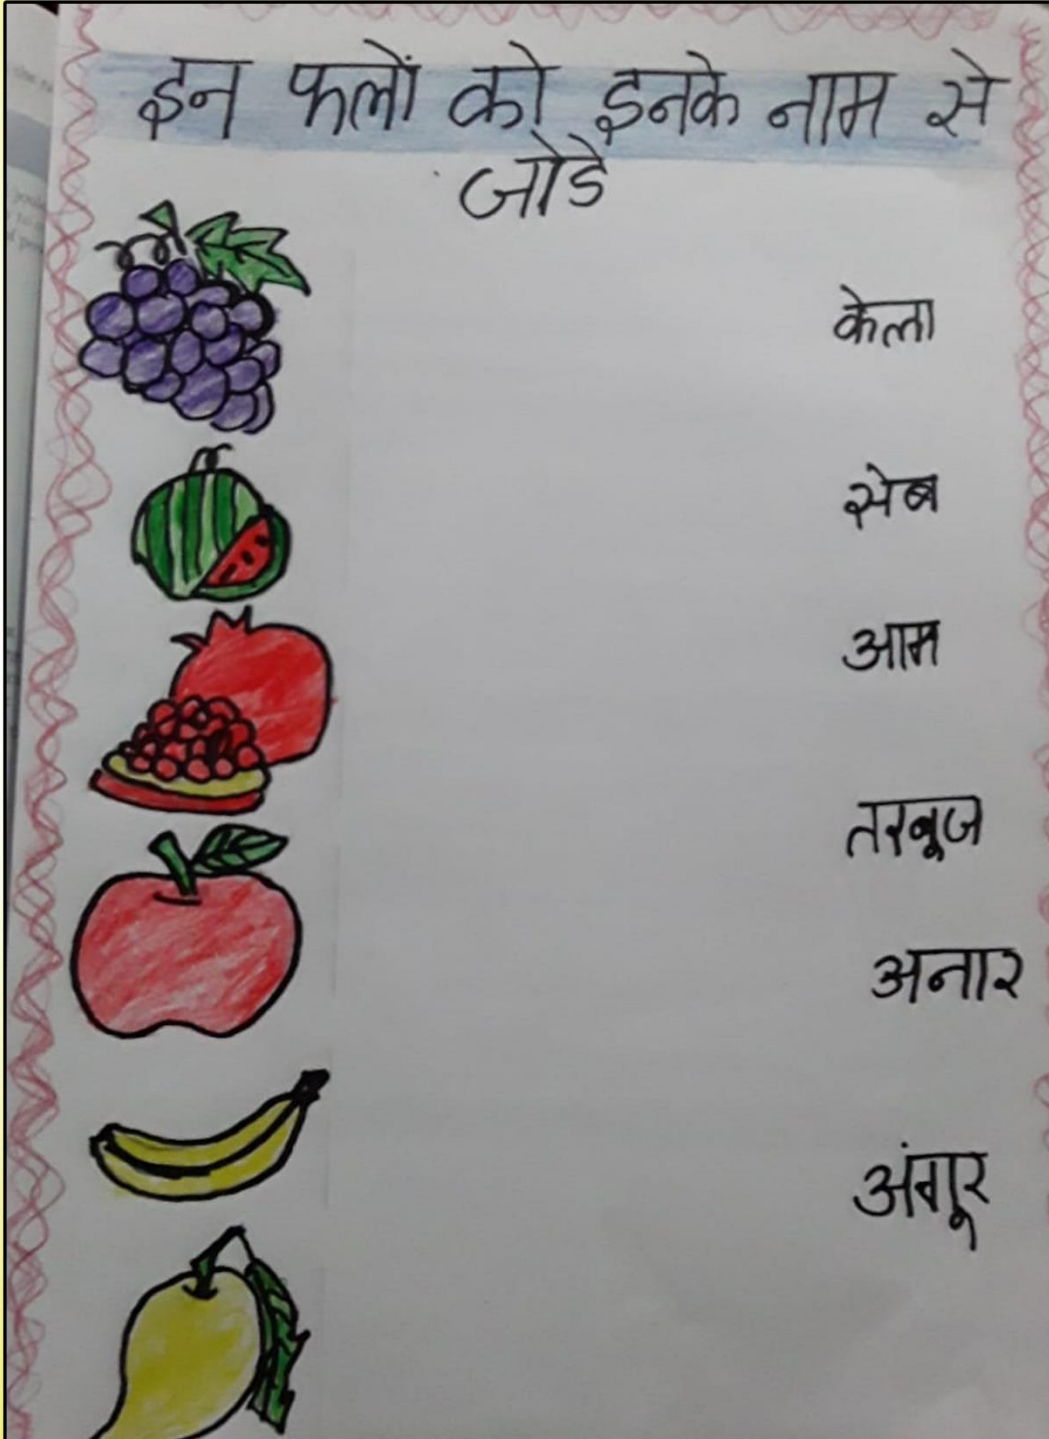 इन फलों को इनके नाम से
जोडे
केला
सेब
आम
तरबूज
अनार
अंगूर